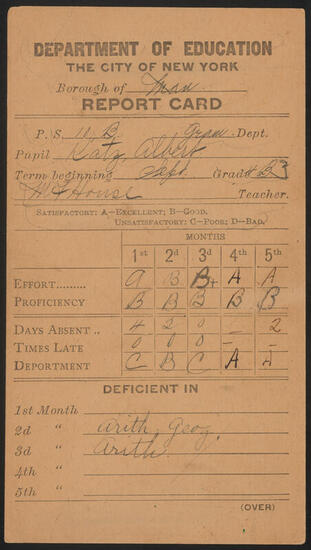 DEPARTMENT OF EDUCATION
THE CITY OF NEW YORK
Borough of Man
REPORT CARD
P. S. 11, B, Gram Dept.
Pupil Katz, Albert
Term beginning Sept. Grade 4 B3
House Teacher.
SATISFACTORY: A—EXCELLENT; B—GOOD.
UNSATISFACTORY: C—POOR; D—BAD.
MONTHS
1st 2d 3d 4th 5th
EFFORT......... A B B+ A A
PROFICIENCY B B B B B
DAYS ABSENT .. 4 2 0 — 2
TIMES LATE 0 0 0 —
DEPARTMENT C B C A A
DEFICIENT IN
1st Month
2d " Arith, Geog.
3d " Arith.
4th "
5th "
(OVER)